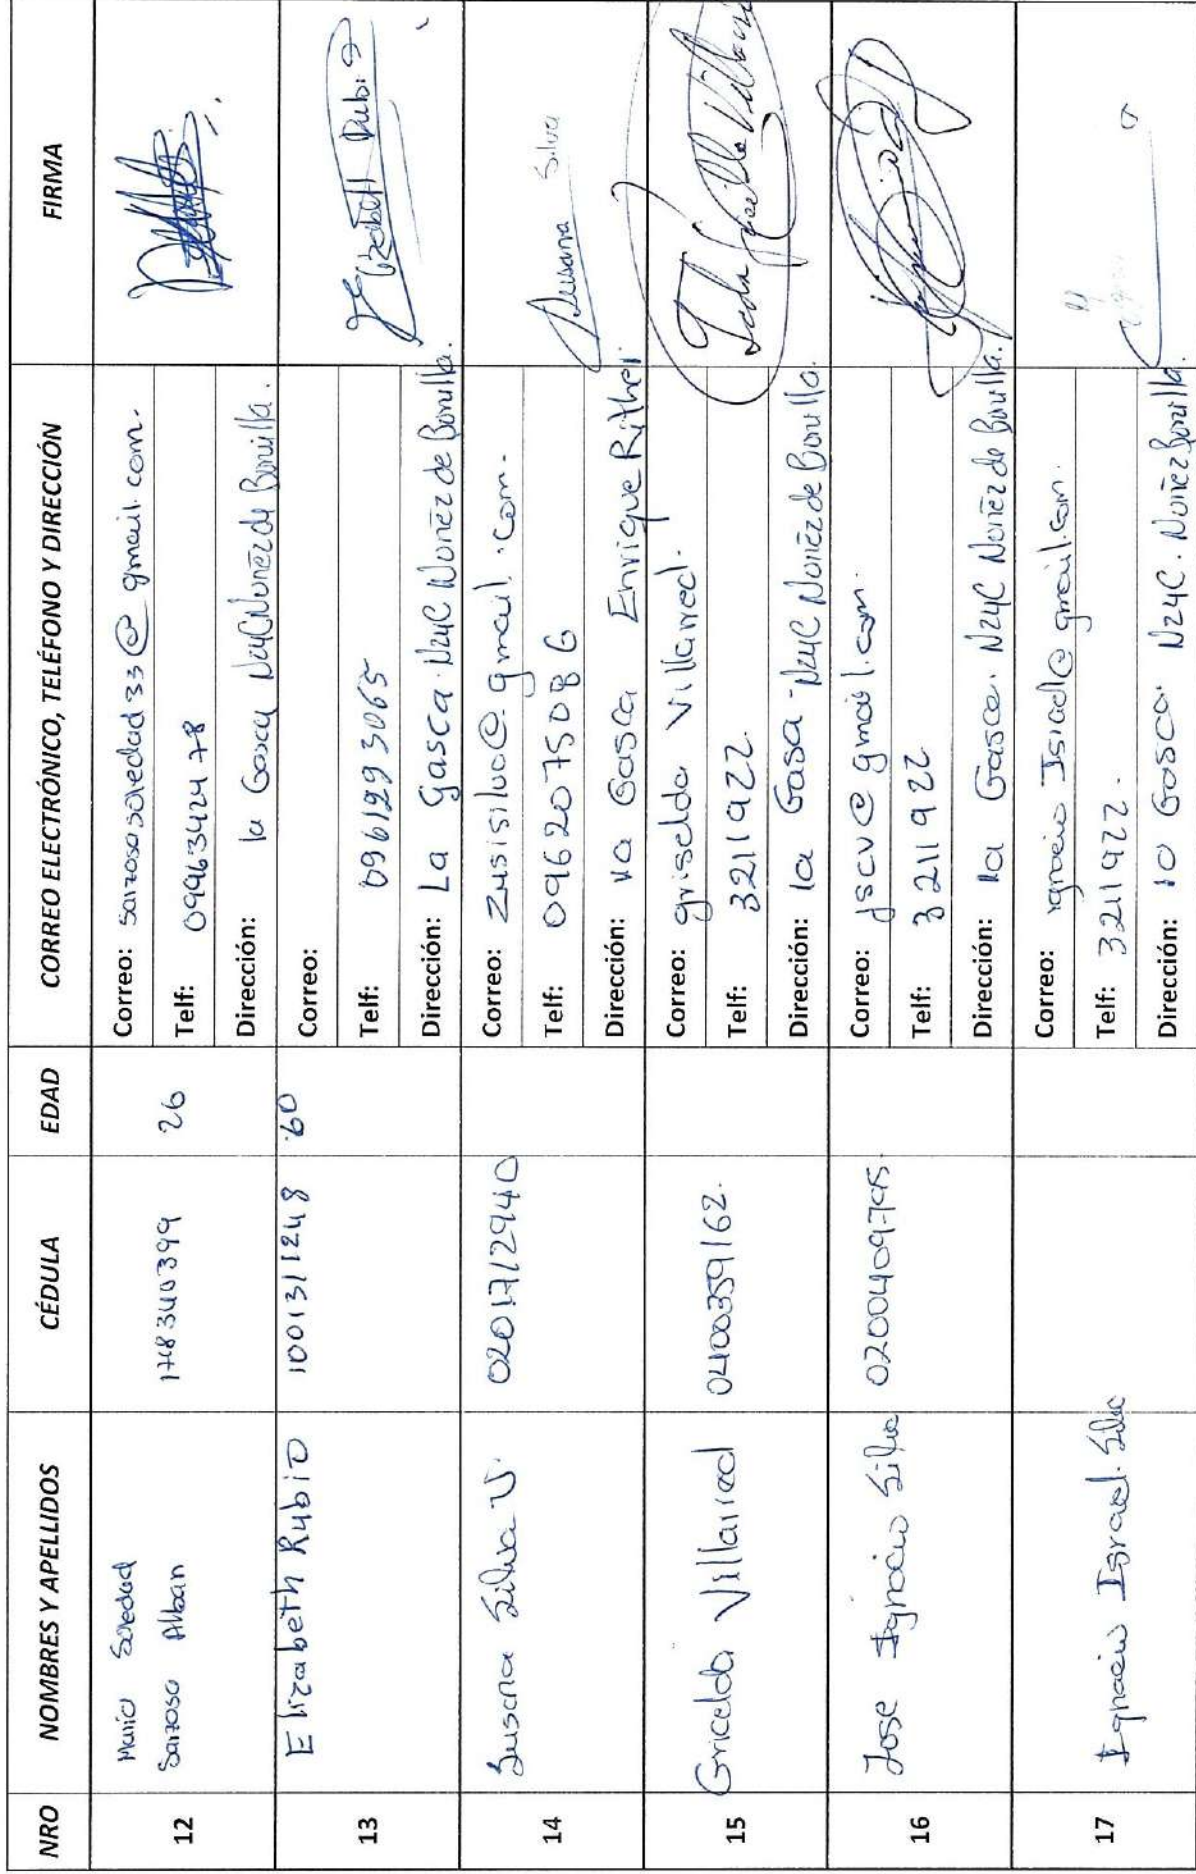 NRO NOMBRES Y APELLIDOS CÉDULA EDAD CORREO ELECTRÓNICO, TELÉFONO Y DIRECCIÓN FIRMA
12
Maria Soledad
Sarzosa Alban
26
Correo: sarzosasoledad33@gmail.com.
Telf: 0996342478
Dirección: la Gasca N24C Nuñez de Bonilla.
13
Elizabeth Rubio
1001311248
60
Correo:
Telf: 0961293065
Dirección: La Gasca N24C Nuñez de Bonilla.
14
Susana Silva V.
0201712940
Correo: Zusisilva@gmail.com.
Telf: 0962075086
Dirección: la Gasca Enrique Rither
Susana Silva
15
Gricelda Villarreal
0400359162.
Correo: griselda Villarreal.
Telf: 3211922.
Dirección: la Gasa N24C Nuñez de Bonilla.
16
Jose Ignacio Silva
Correo: jscv@gmail.com.
Telf: 3211922
Dirección: la Gasca. N24C Nuñez de Bonilla.
17
Ignacio Israel Silva
Correo: ignacio Israel@gmail.com.
Telf: 3211922.
Dirección: la Gasca. N24C. Nuñez Bonilla.